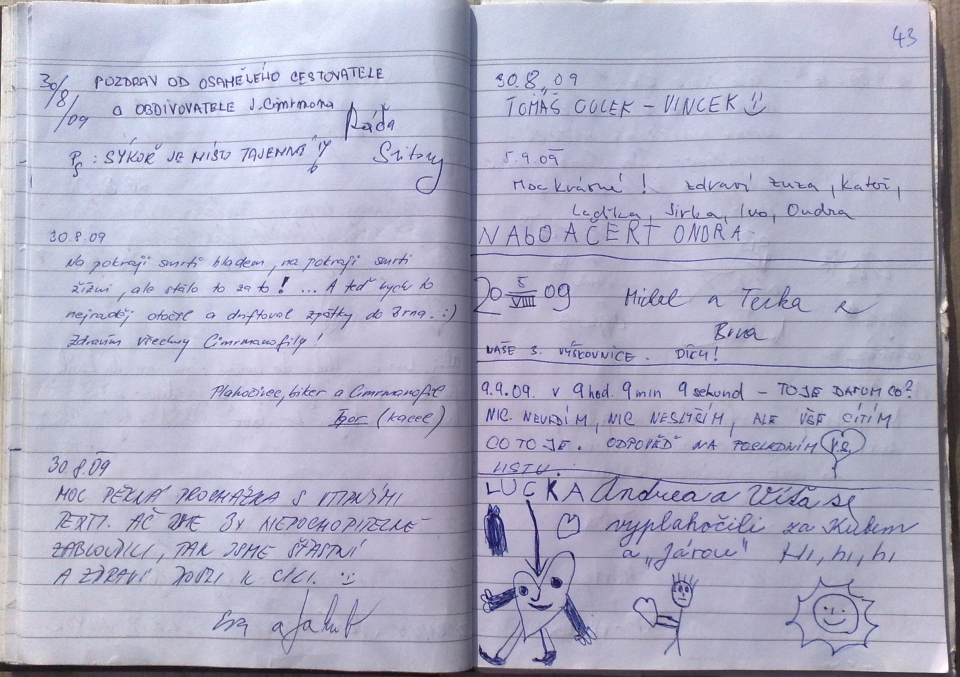 30/8/09 POZDRAV OD OSAMĚLÉHO CESTOVATELE
a OBDIVOVATELE J. Cimrmana
Ráďa
PS: SÝKOŘ JE MÍSTO TAJEMNÁ
30.8.09
Na pokraji smrti hladem, na pokraji smrti
žízní, ale stálo to za to! ... A teď bych to
nejraděj otočil a driftoval zpátky do Brna. :)
Zdravím všechny Cimrmanofily!
Plahočivec, biker a Cimrmanofil
Igor (kacel)
30.8.09
MOC PĚKNÁ PROCHÁZKA S VTIPNÝMI
TEXTY. AČ JSME 3x NEPOCHOPITELNĚ
ZABLOUDILI, TAK JSME ŠŤASTNÍ
A ZDRAVÍ DOŠLI K CÍLI. :)
Eva a Jakub
43
30.8.09
TOMÁŠ OULEK - VINCEK :)
5.9.09
Moc krásné! zdraví Zuza, Kateř,
Laďka, Jirka, Ivo, Ondra
NABOAČERT ONDRA
20 5/VIII 09 Michal a Terka z
Brna
NAŠE 3. VÝŠKOVNICE. DÍKY!
9.9.09. v 9 hod. 9 min 9 sekund - TO JE DATUM CO?
NIC NEVIDÍM, NIC NESLYŠÍM, ALE VŠE CÍTÍM
CO TO JE. ODPOVĚĎ NA POSLEDNÍM
LISTU.
LUCKA Andrea a Víťa se
vyplahočili za Kubem
a "Járou" Hi, hi, hi